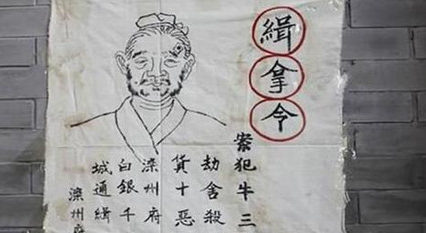 緝拿令
案犯牛三
劫舍殺
貨十惡
滦州府
白銀千
城通緝
滦州府